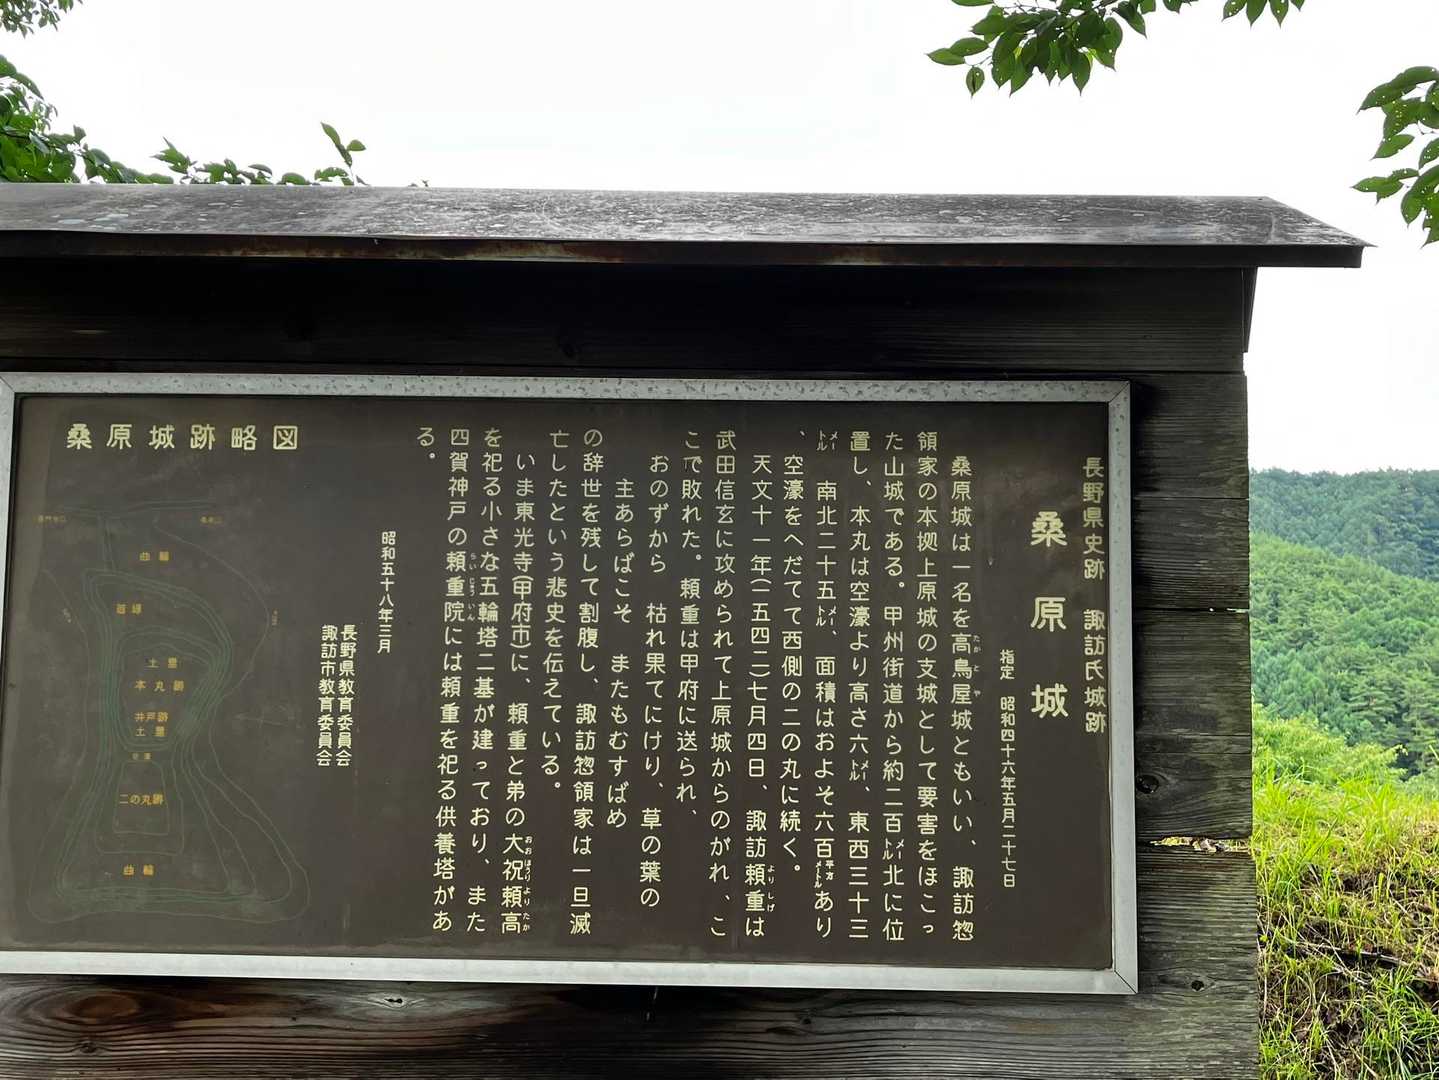 長野県史跡　諏訪氏城跡
桑原城
指定　昭和四十六年五月二十七日
桑原城は一名を高鳥屋城ともいい、諏訪惣
領家の本拠上原城の支城として要害をほこっ
た山城である。甲州街道から約二百メートル北に位
置し、本丸は空濠より高さ六メートル、東西三十三
メートル　南北二十五メートル、面積はおよそ六百平方メートルあり
、空濠をへだてて西側の二の丸に続く。
天文十一年(一五四二)七月四日、諏訪頼重は
武田信玄に攻められて上原城からのがれ、こ
こで敗れた。頼重は甲府に送られ、
おのずから　枯れ果てにけり、草の葉の
主あらばこそ　またもむすばめ
の辞世を残して割腹し、諏訪惣領家は一旦滅
亡したという悲史を伝えている。
いま東光寺(甲府市)に、頼重と弟の大祝頼高
を祀る小さな五輪塔二基が建っており、また
四賀神戸の頼重院には頼重を祀る供養塔があ
る。
昭和五十八年三月
長野県教育委員会
諏訪市教育委員会
桑原城跡略図
曲輪
首塚
土塁
本丸跡
井戸跡
土塁
空濠
二の丸跡
曲輪